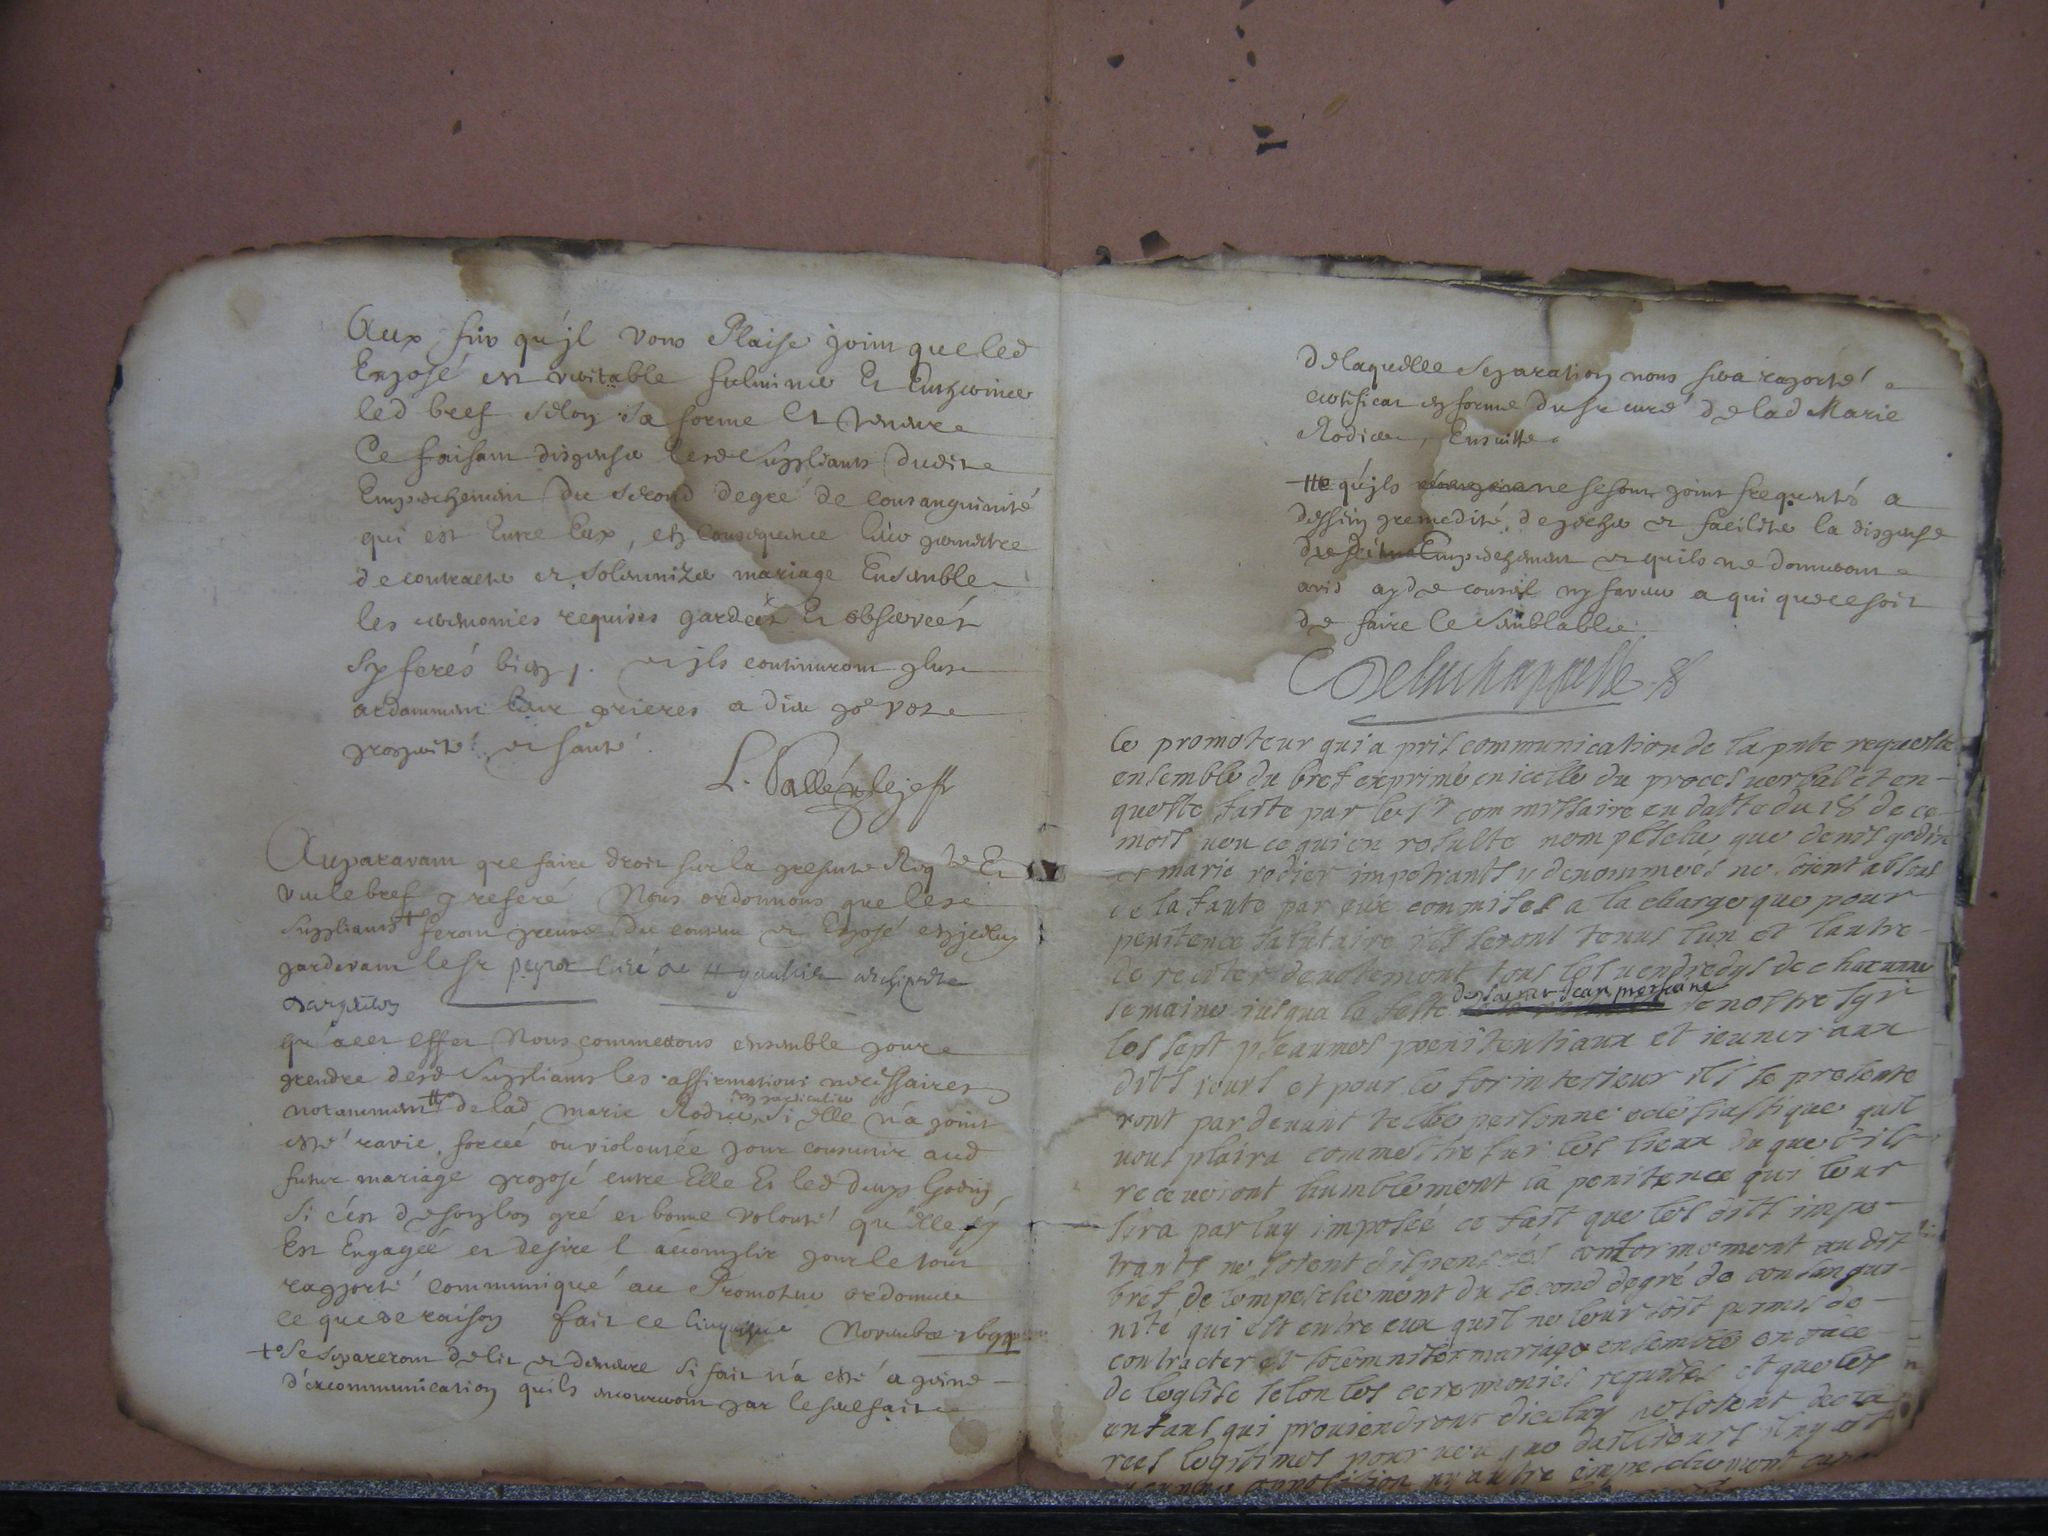 Aux fins qu'jl vous Plaise joint que led
Exposé est veritable fulminer Et Entheriner
led bref selon sa forme Et teneure
Ce faisant dispenser lesd Suppliants dudit
Empeschement Du second degré de consanguinité
qui est Entre Eux, en Consequence leur permettre
de contracter et solemnizer mariage Ensemble
les ceremonies requises gardeés Et observeés
Sy ferés bien /. et jls continueront plus
ardamment leur prieres a dieu po.r vostre
prosperité et santé.
L. Vallée
Auparavant que faire droit sur la presente Reqte Et
veu le bref y referé Nous ordonnons que lesd
Suppliants + feront preuve du contenu et Exposé en jceluy
pardevant le Sr curé de
qu'a cet effet Nous commettons ensemble pour
prendre desd Suppliants les affirmations necessaires
notamment de lad marie Rodier, en particulier Si Elle n'a point
esté ravie, forcée ou violentée pour consentir aud
futur mariage proposé entre Elle Et led denys Godin
Si c'est de son bon gré et bonne volonté qu'elle sy
Est Engagée et desire l accomplir pour le tout
rapporté communiqué au Promoteur ordonner
ce que de raison fait ce Cinquiesme Novembre
+ Se separeront de lit et demeure Si fait n'a esté a peine
d'excommunication quils encourront par le seul fait
De laquelle Separation nous sera raporté
certificat en forme du Sr curé de lad Marie
Rodier, Ensuitte
# qu'jls ne se sont point frequentés a
dessein premedité de pecher et faciliter la dispense
dud Empeschement et quils ne donneront
avis ayde conseil ny faveur a qui que ce soit
de faire le semblable
Delachappelle
le promoteur qui a pris communication de la pnte requeste
ensemble du bref exprimé en icelle du proces verbal et en-
queste faite par le Sr commissaire en datte du 18 de ce
mois veu ce qui en resulte nempesche que denis godin
et marie rodier impetrants y denommeés ne soient absous
de la faute par eux commises a la charge que pour
penitence salutaire ils seront tenus lun et lautre
de reciter devotement tous les vendredys de chacune
semaine jusqua la feste de saint Jean prochaine de nostre sgr
les sept pseaumes penitentiaux et jeuner aux
dits jours et pour le for interieur ils se presente
ront par devant telle personne ecclesiastique quil
vous plaira commettre sur les lieux du quel ils
recevront humblement la penitence qui leur
sera par luy imposéé ce fait que les dits impe-
trants ne soient dispensés conformement au dit
bref de lempeschement du second degré de consangui-
nité qui est entre eux quil ne leur soit permis de
contracter et solemniser mariage ensemble en face
de leglise selon les ceremonies requises et que les
enfans qui proviendront diceluy ne soient decla
reés legitimes pourveu que dailleurs il ny ait
aucune opposition ny autre empeschement